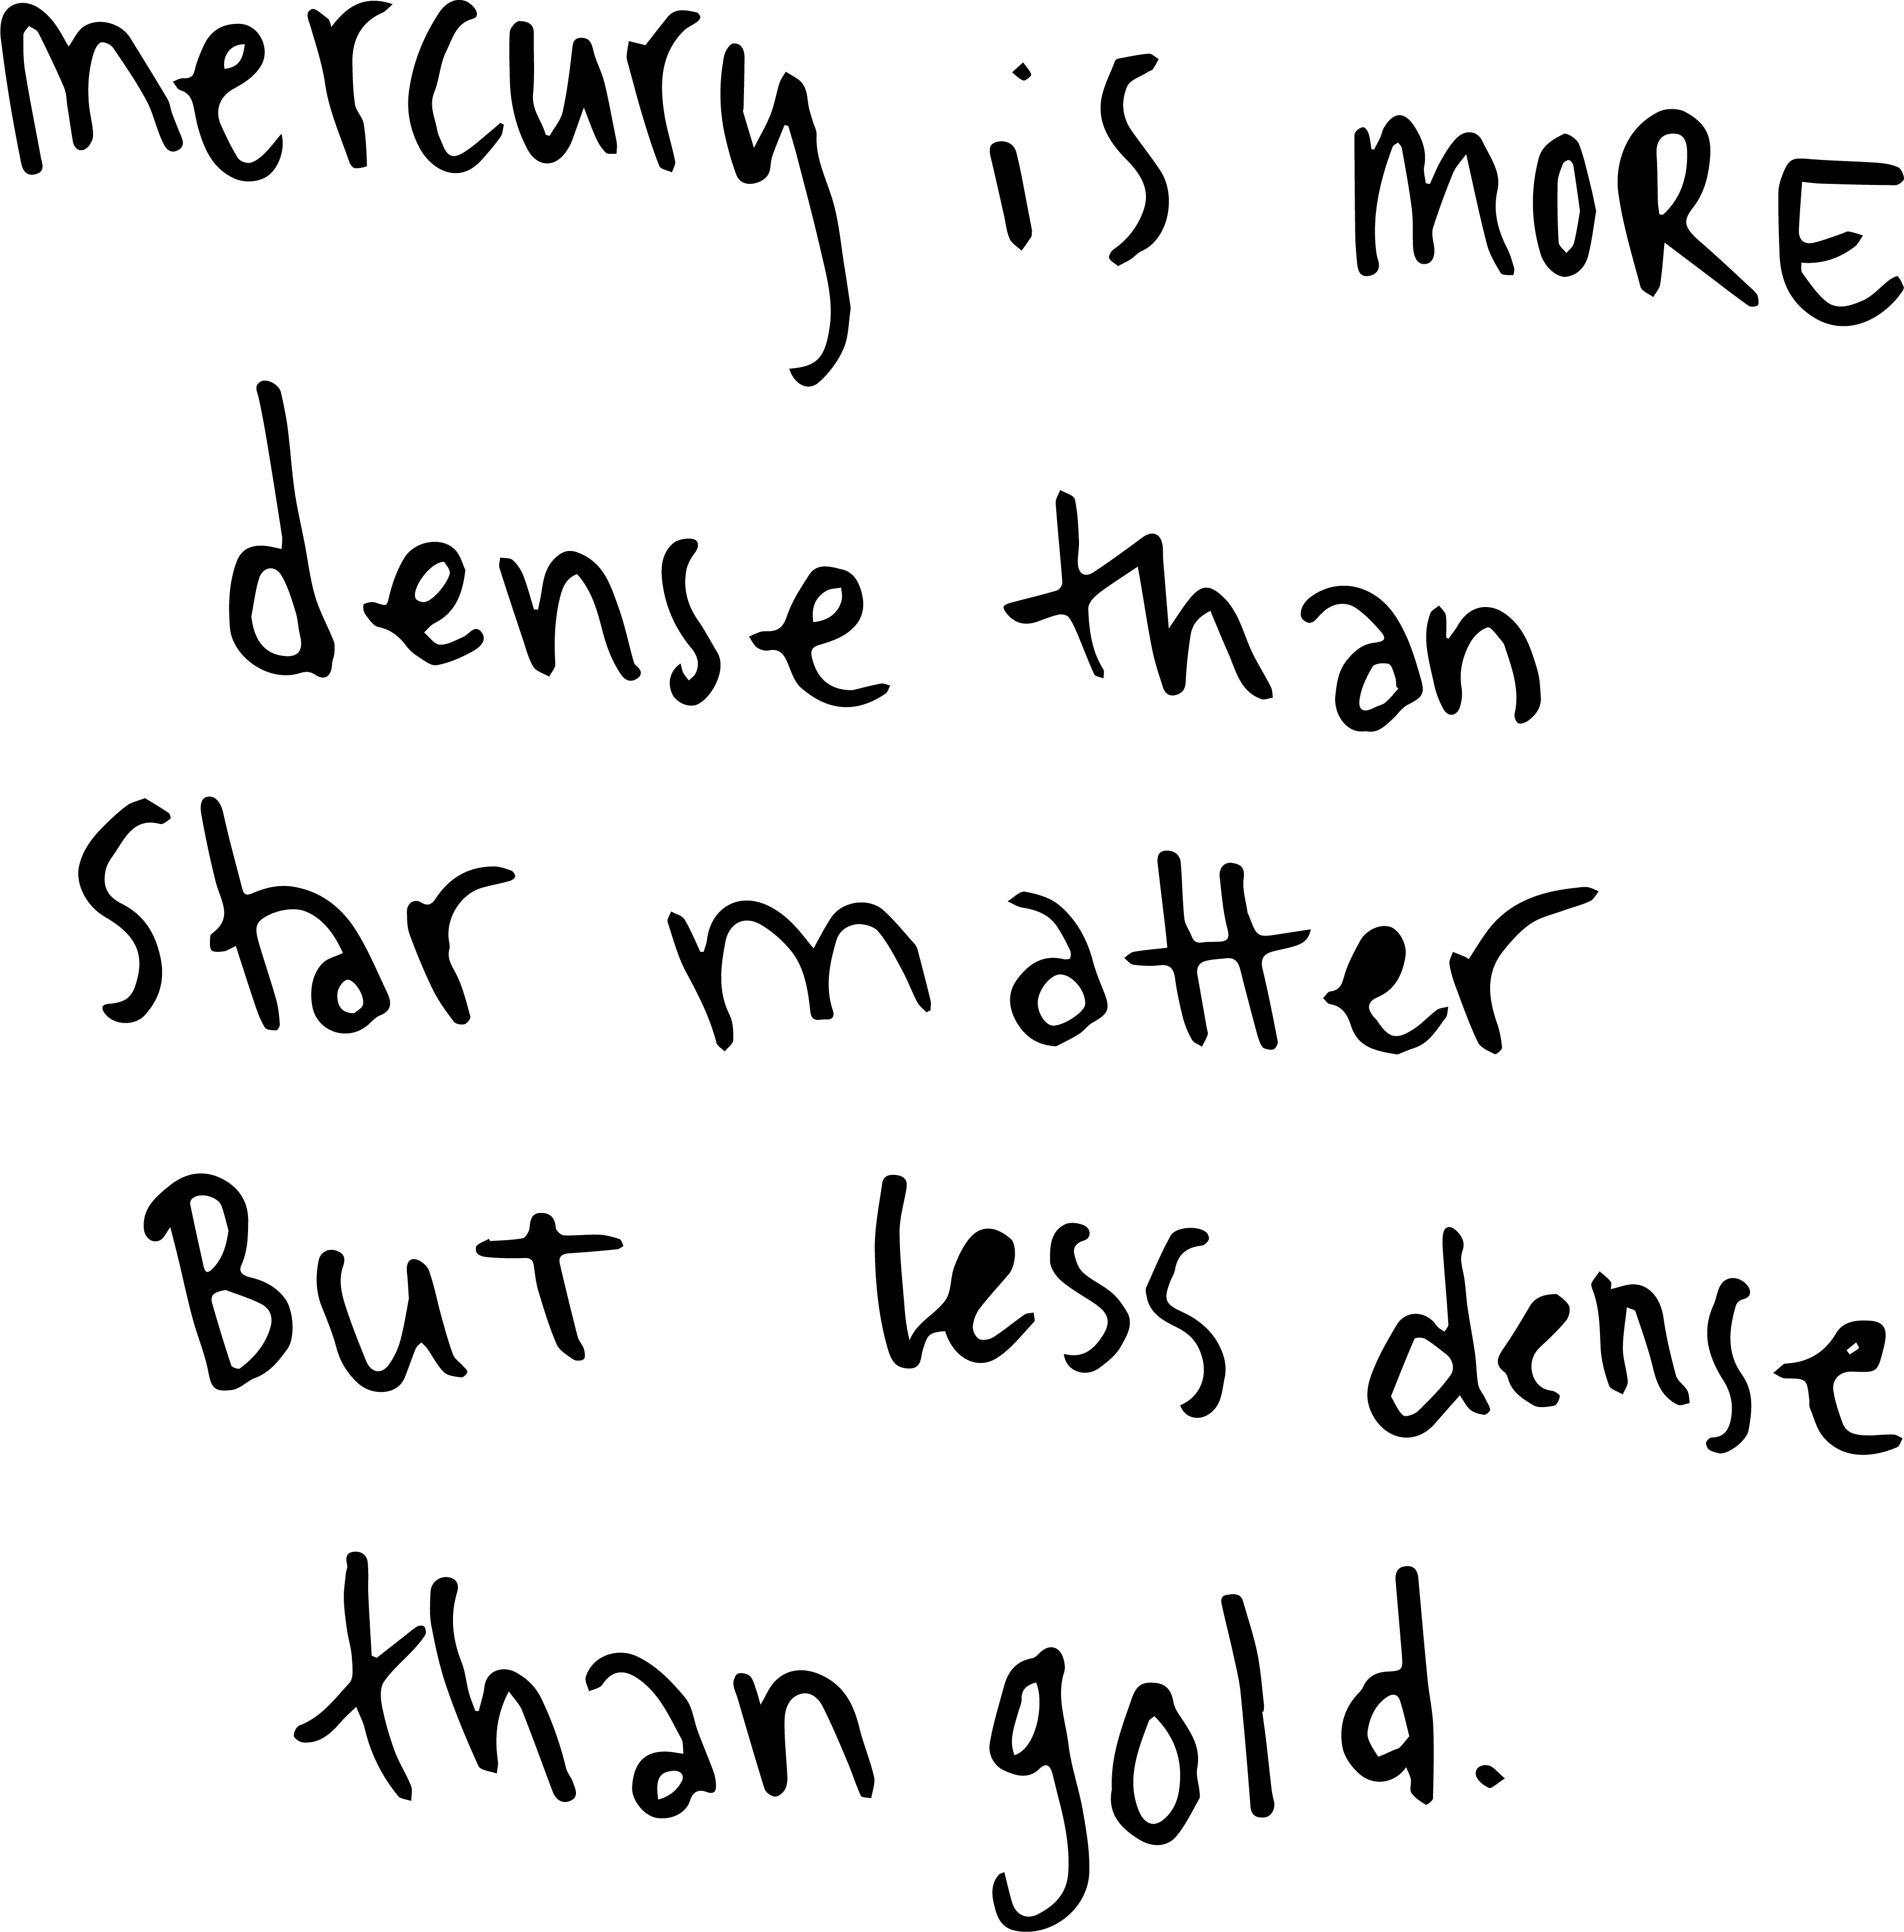 mercury is moRE
dense than
Star matter
But less dense
than gold.